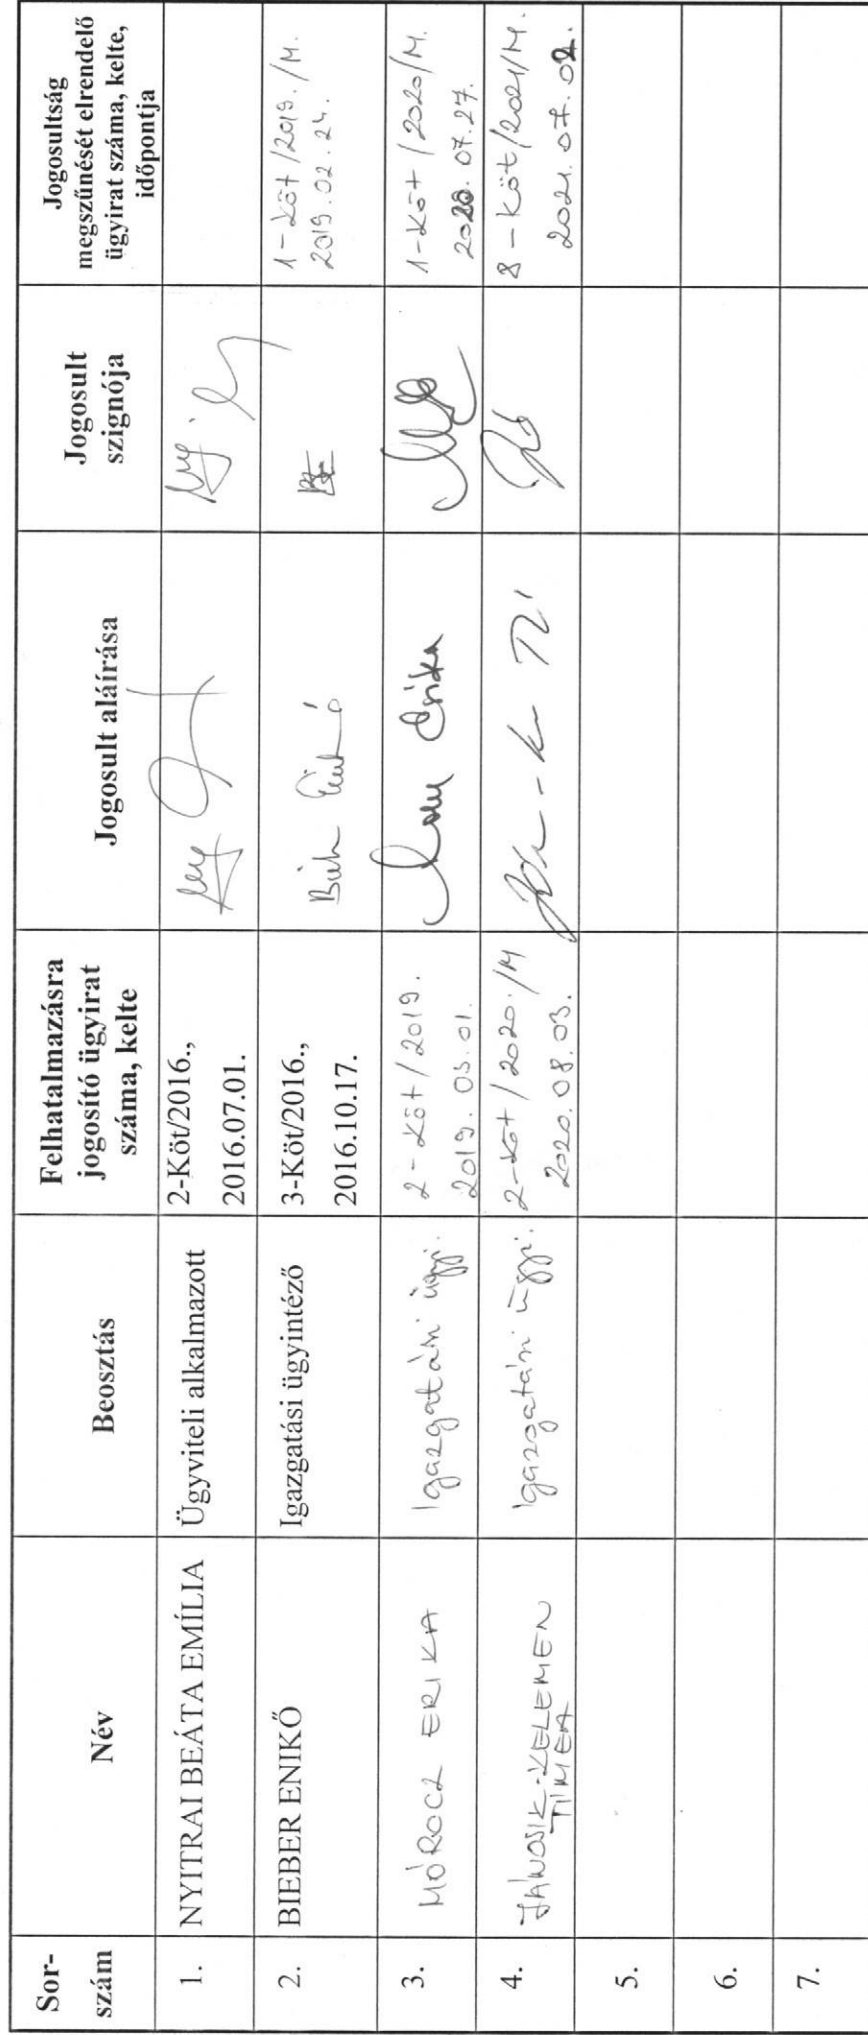 Sor-
szám
Név
Beosztás
Felhatalmazásra
jogosító ügyirat
száma, kelte
Jogosult aláírása
Jogosult
szignója
Jogosultság
megszűnését elrendelő
ügyirat száma, kelte,
időpontja
1.
NYITRAI BEÁTA EMÍLIA
Ügyviteli alkalmazott
2-Köt/2016.,
2016.07.01.
2.
BIEBER ENIKŐ
Igazgatási ügyintéző
3-Köt/2016.,
2016.10.17.
1-Köt/2019./M.
2019.02.24.
3.
MÓROCZ ERIKA
Igazgatási ügyi.
2-Köt/2019.
2019.03.01.
Erika
1-Köt/2020/M.
2020.07.27.
4.
JÁNOSIK-KELEMEN
TÍMEA
Igazgatási ügyi.
2-Köt/2020./M
2020.08.03.
8-Köt/2021/M.
2021.07.02.
5.
6.
7.